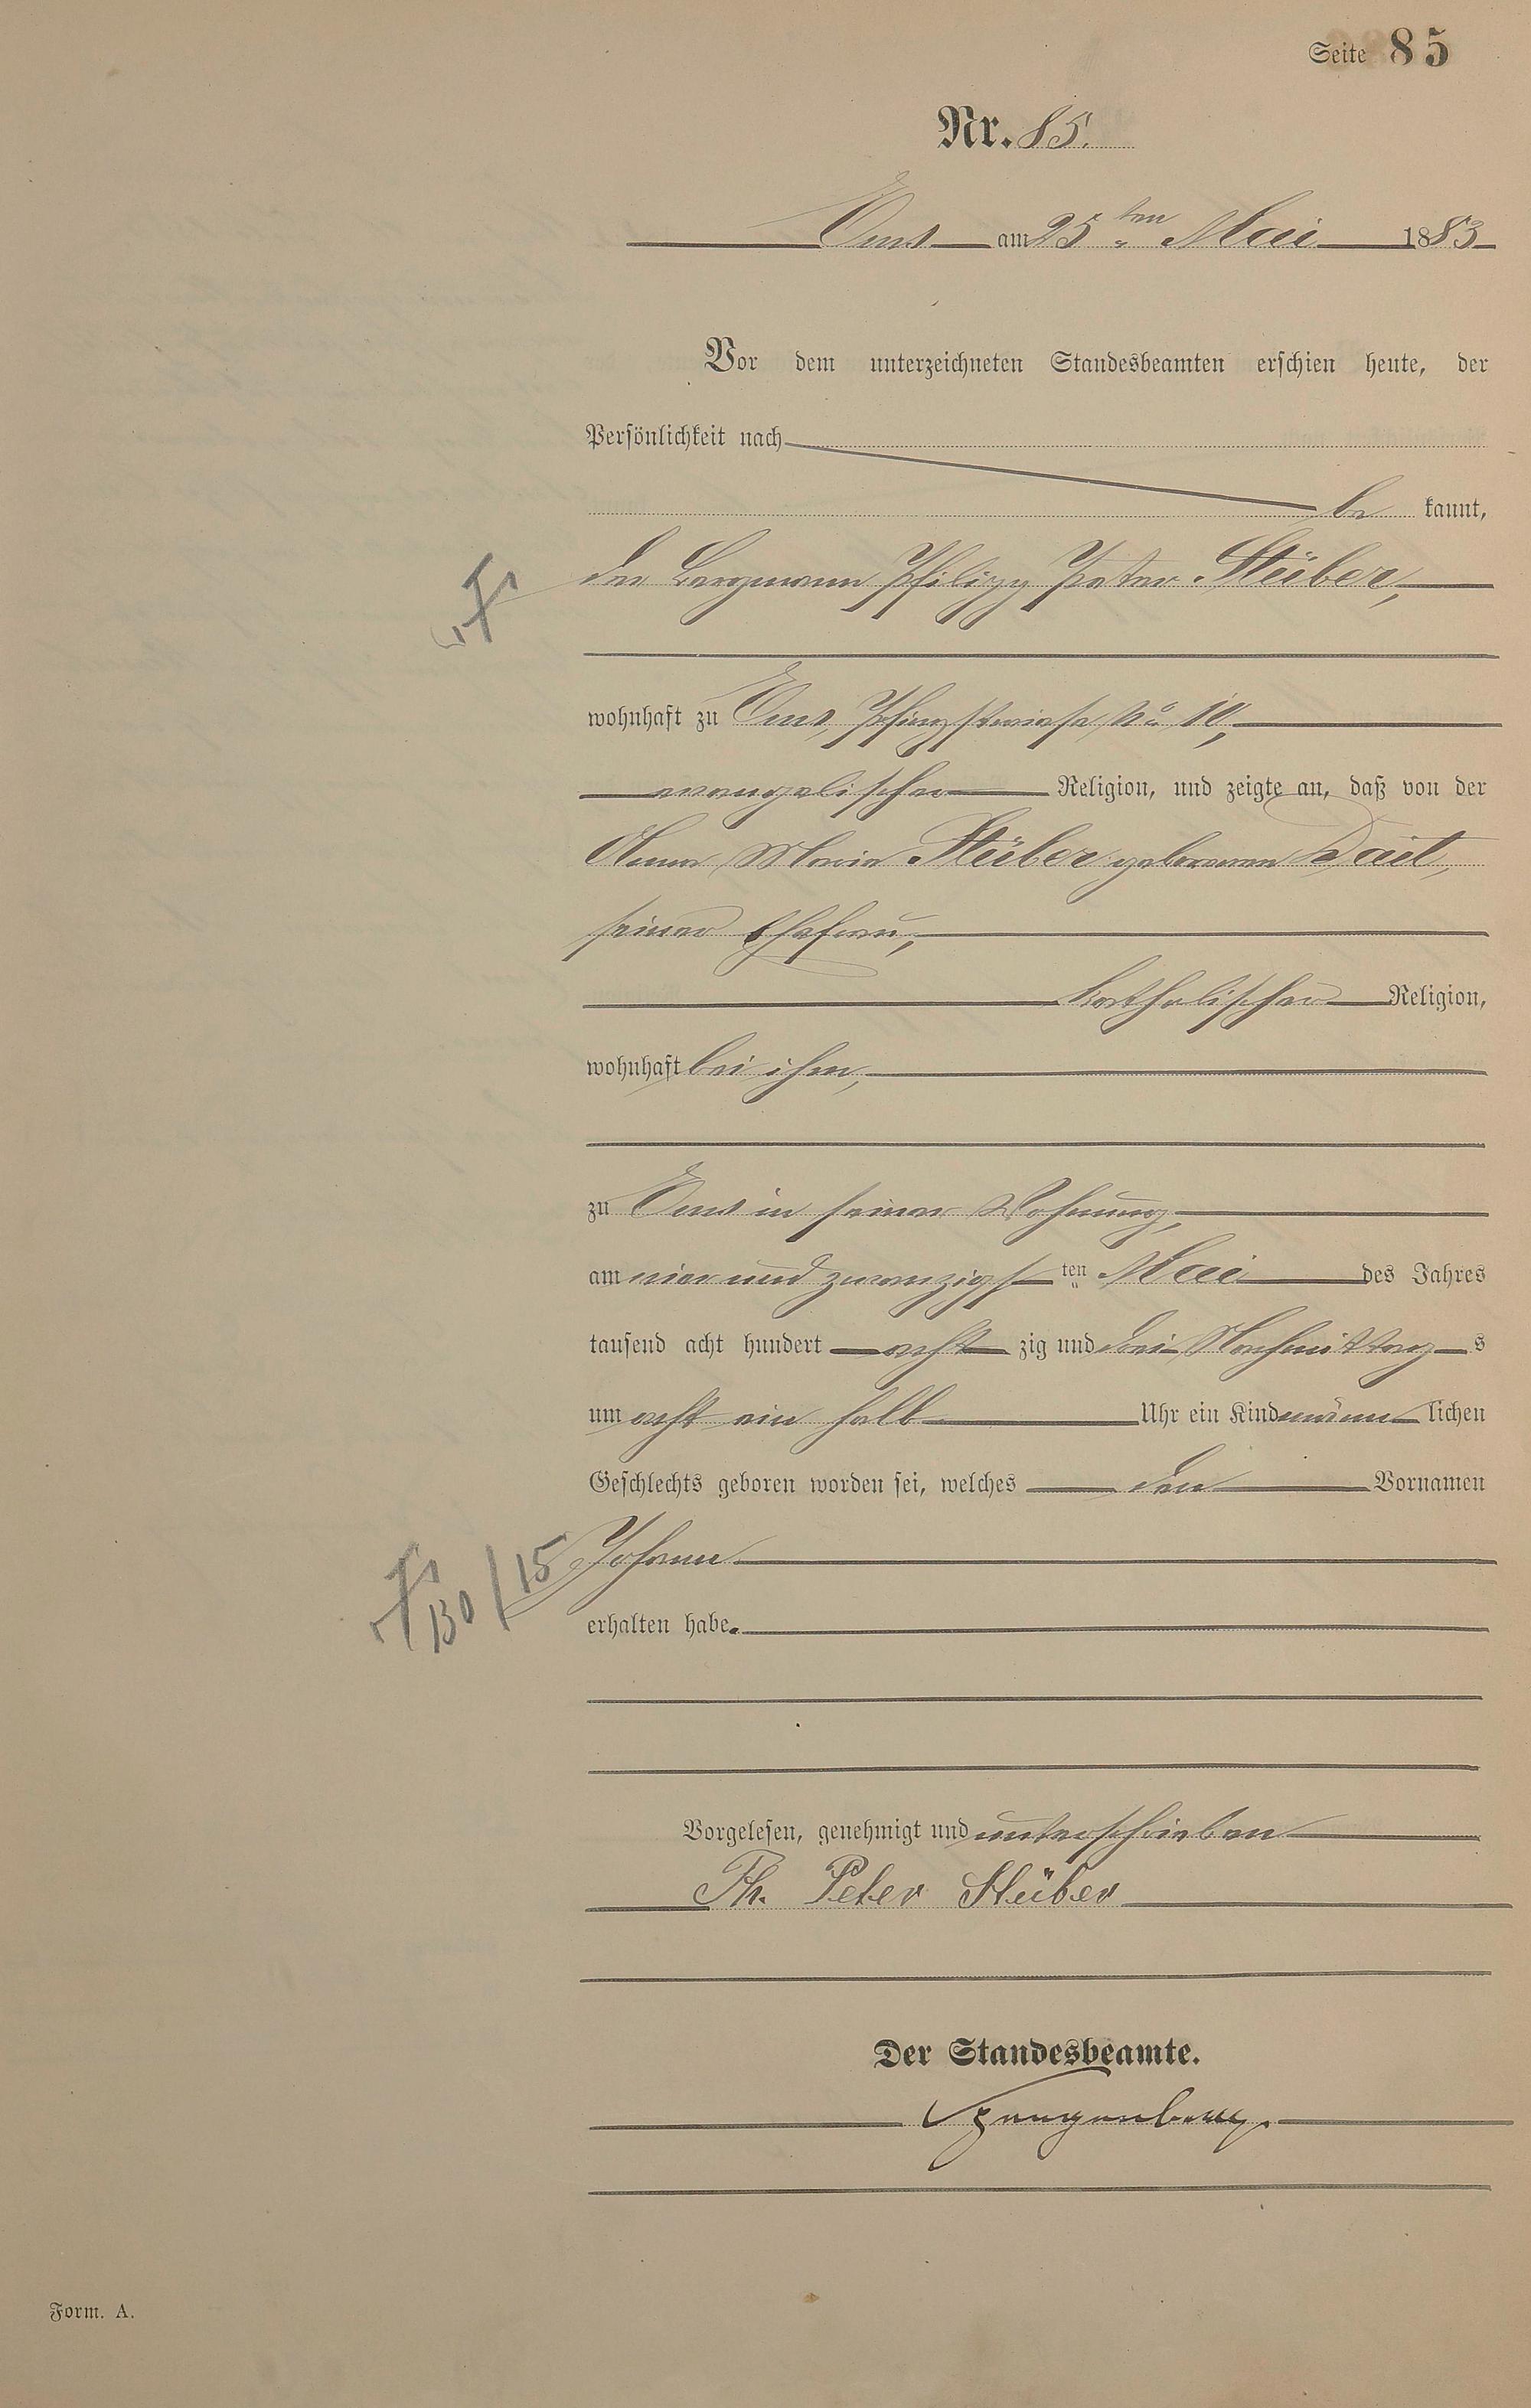 Seite 85
Nr. 85.
Ems am 25ten Mai 1883
Vor dem unterzeichneten Standesbeamten erschien heute, der
Persönlichkeit nach
be kannt,
der Bergmann Philipp Peter Stüber,
wohnhaft zu Ems, Pfingstwiese No 10,
evangelischer Religion, und zeigte an, daß von der
Anna Maria Stüber geborenen Dait,
seiner Ehefrau,
katholischer Religion,
wohnhaft bei ihm,
zu Ems in seiner Wohnung,
am vier und zwanzigsten Mai des Jahres
tausend acht hundert acht zig und drei Nachmittags
um acht ein halb Uhr ein Kind männlichen
Geschlechts geboren worden sei, welches den Vornamen
130/15 Johann
erhalten habe.
Vorgelesen, genehmigt und unterschrieben
Ph. Peter Stüber
Der Standesbeamte.
Spangenberg.
Form. A.